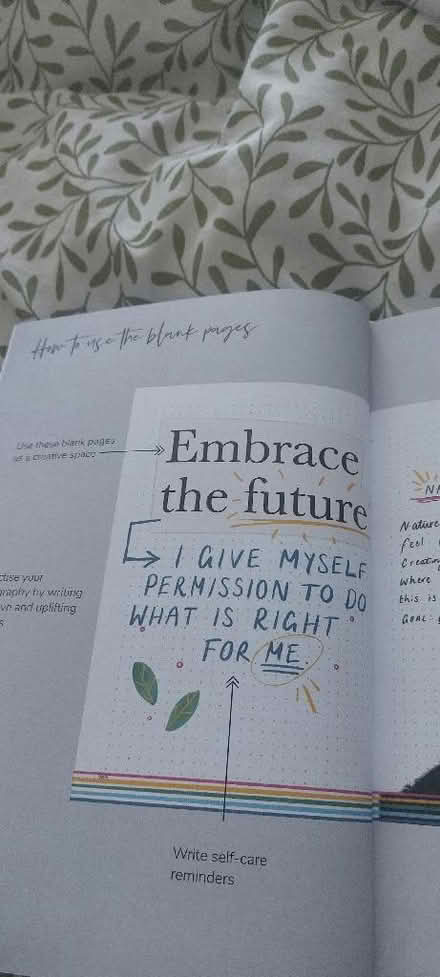 How to use the blank pages
Use these blank pages
as a creative space
Embrace
the future
I GIVE MYSELF
PERMISSION TO DO
WHAT IS RIGHT
FOR ME.
ctise your
graphy by writing
ve and uplifting
s
Write self-care
reminders
Nature
feel
Creating
where
this is
GOAL: